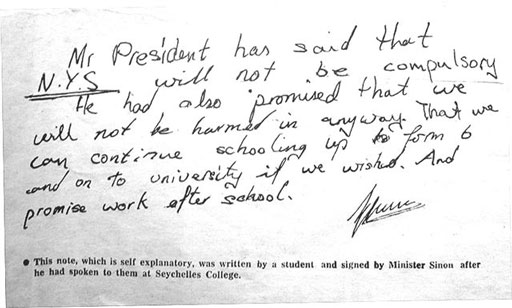 Mr President has said that
N.Y.S will not be compulsory
He had also promised that we
will not be harmed in anyway. That we
can continue schooling up to form 6
and on to university if we wished. And
promise work after school.
● This note, which is self explanatory, was written by a student and signed by Minister Sinon after
he had spoken to them at Seychelles College.